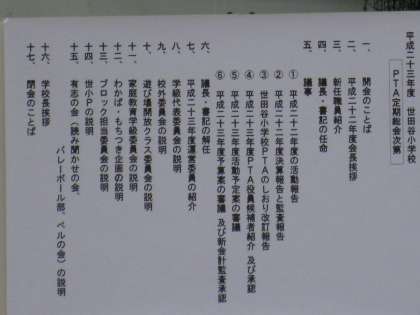 平成二十三年度 世田谷小学校
PTA 定期総会次第
一、開会のことば
二、平成二十二年度会長挨拶
三、新任職員紹介
四、議長・書記の任命
五、議事
① 平成二十二年度の活動報告
② 平成二十二年度決算報告と監査報告
③ 世田谷小学校PTAのしおり改訂報告
④ 平成二十三年度PTA役員候補者紹介 及び承認
⑤ 平成二十三年度活動予定案の審議
⑥ 平成二十三年度予算案の審議 及び新会計監査承認
六、議長・書記の解任
七、平成二十三年度運営委員の紹介
八、学級代表委員会の説明
九、校外委員会の説明
十、遊び場開放クラス委員会の説明
十一、家庭教育学級委員会の説明
十二、わかば・もちつき企画の説明
十三、ブロック担当委員会の説明
十四、世小Pの説明
十五、有志の会(読み聞かせの会、
バレーボール部、ベルの会)の説明
十六、学校長挨拶
十七、閉会のことば